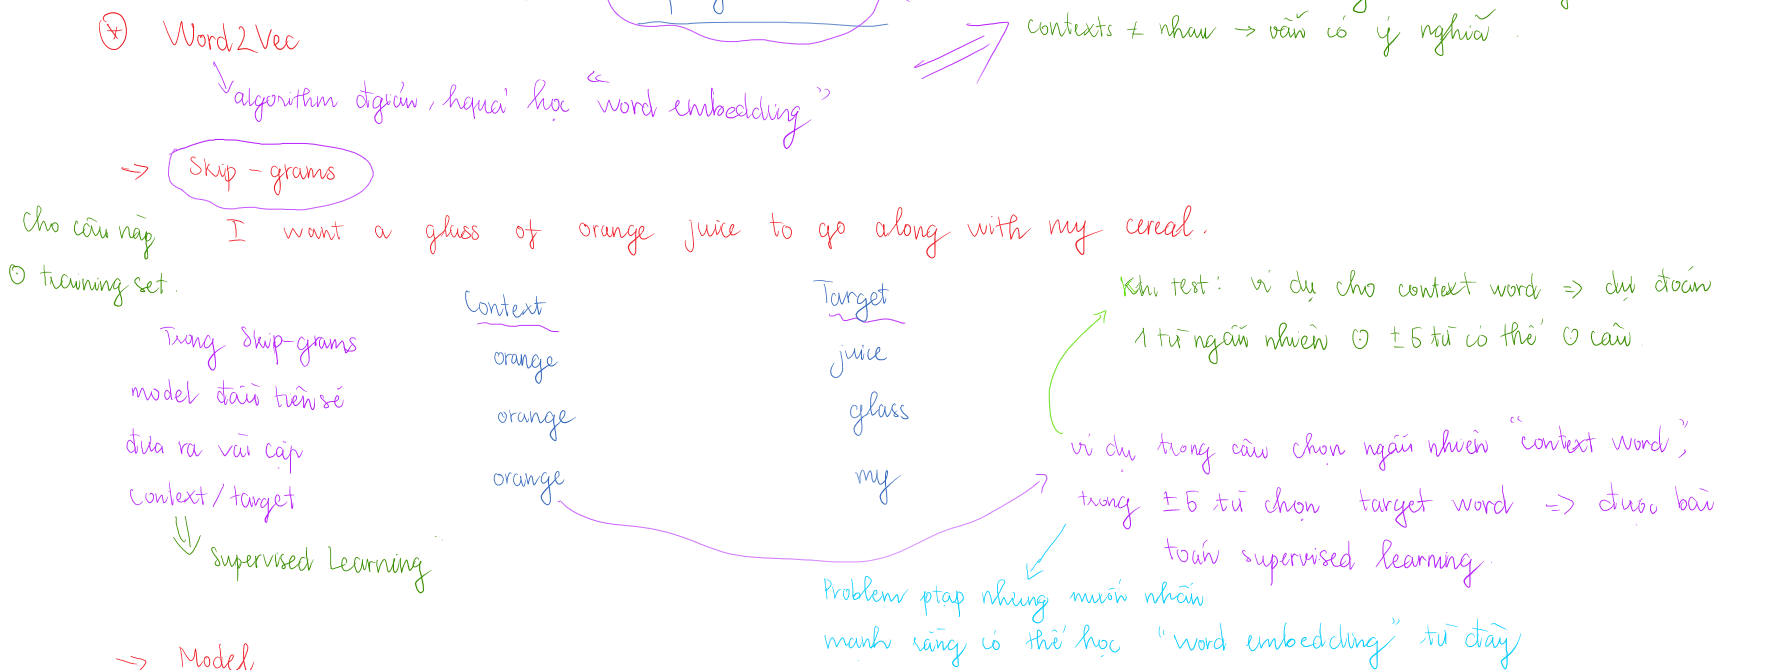 contexts ≠ nhau → vẫn có ý nghĩa.
* Word2Vec
algorithm đgiản, hquả học "word embedding"
→ Skip - grams
Cho câu này I want a glass of orange juice to go along with my cereal.
⊙ training set.
Context Target
orange juice
orange glass
orange my
Trong Skip-grams
model đầu tiên sẽ
đưa ra vài cặp
Context/target
Supervised Learning
Khi test: ví dụ cho context word => dự đoán
1 từ ngẫu nhiên ⊙ ±5 từ có thể ⊙ câu
ví dụ trong câu chọn ngẫu nhiên "context word",
trong ±5 từ chọn target word => được bài
toán supervised learning
Problem ptạp nhưng muốn nhấn
mạnh rằng có thể học "word embedding" từ đây
→ Model